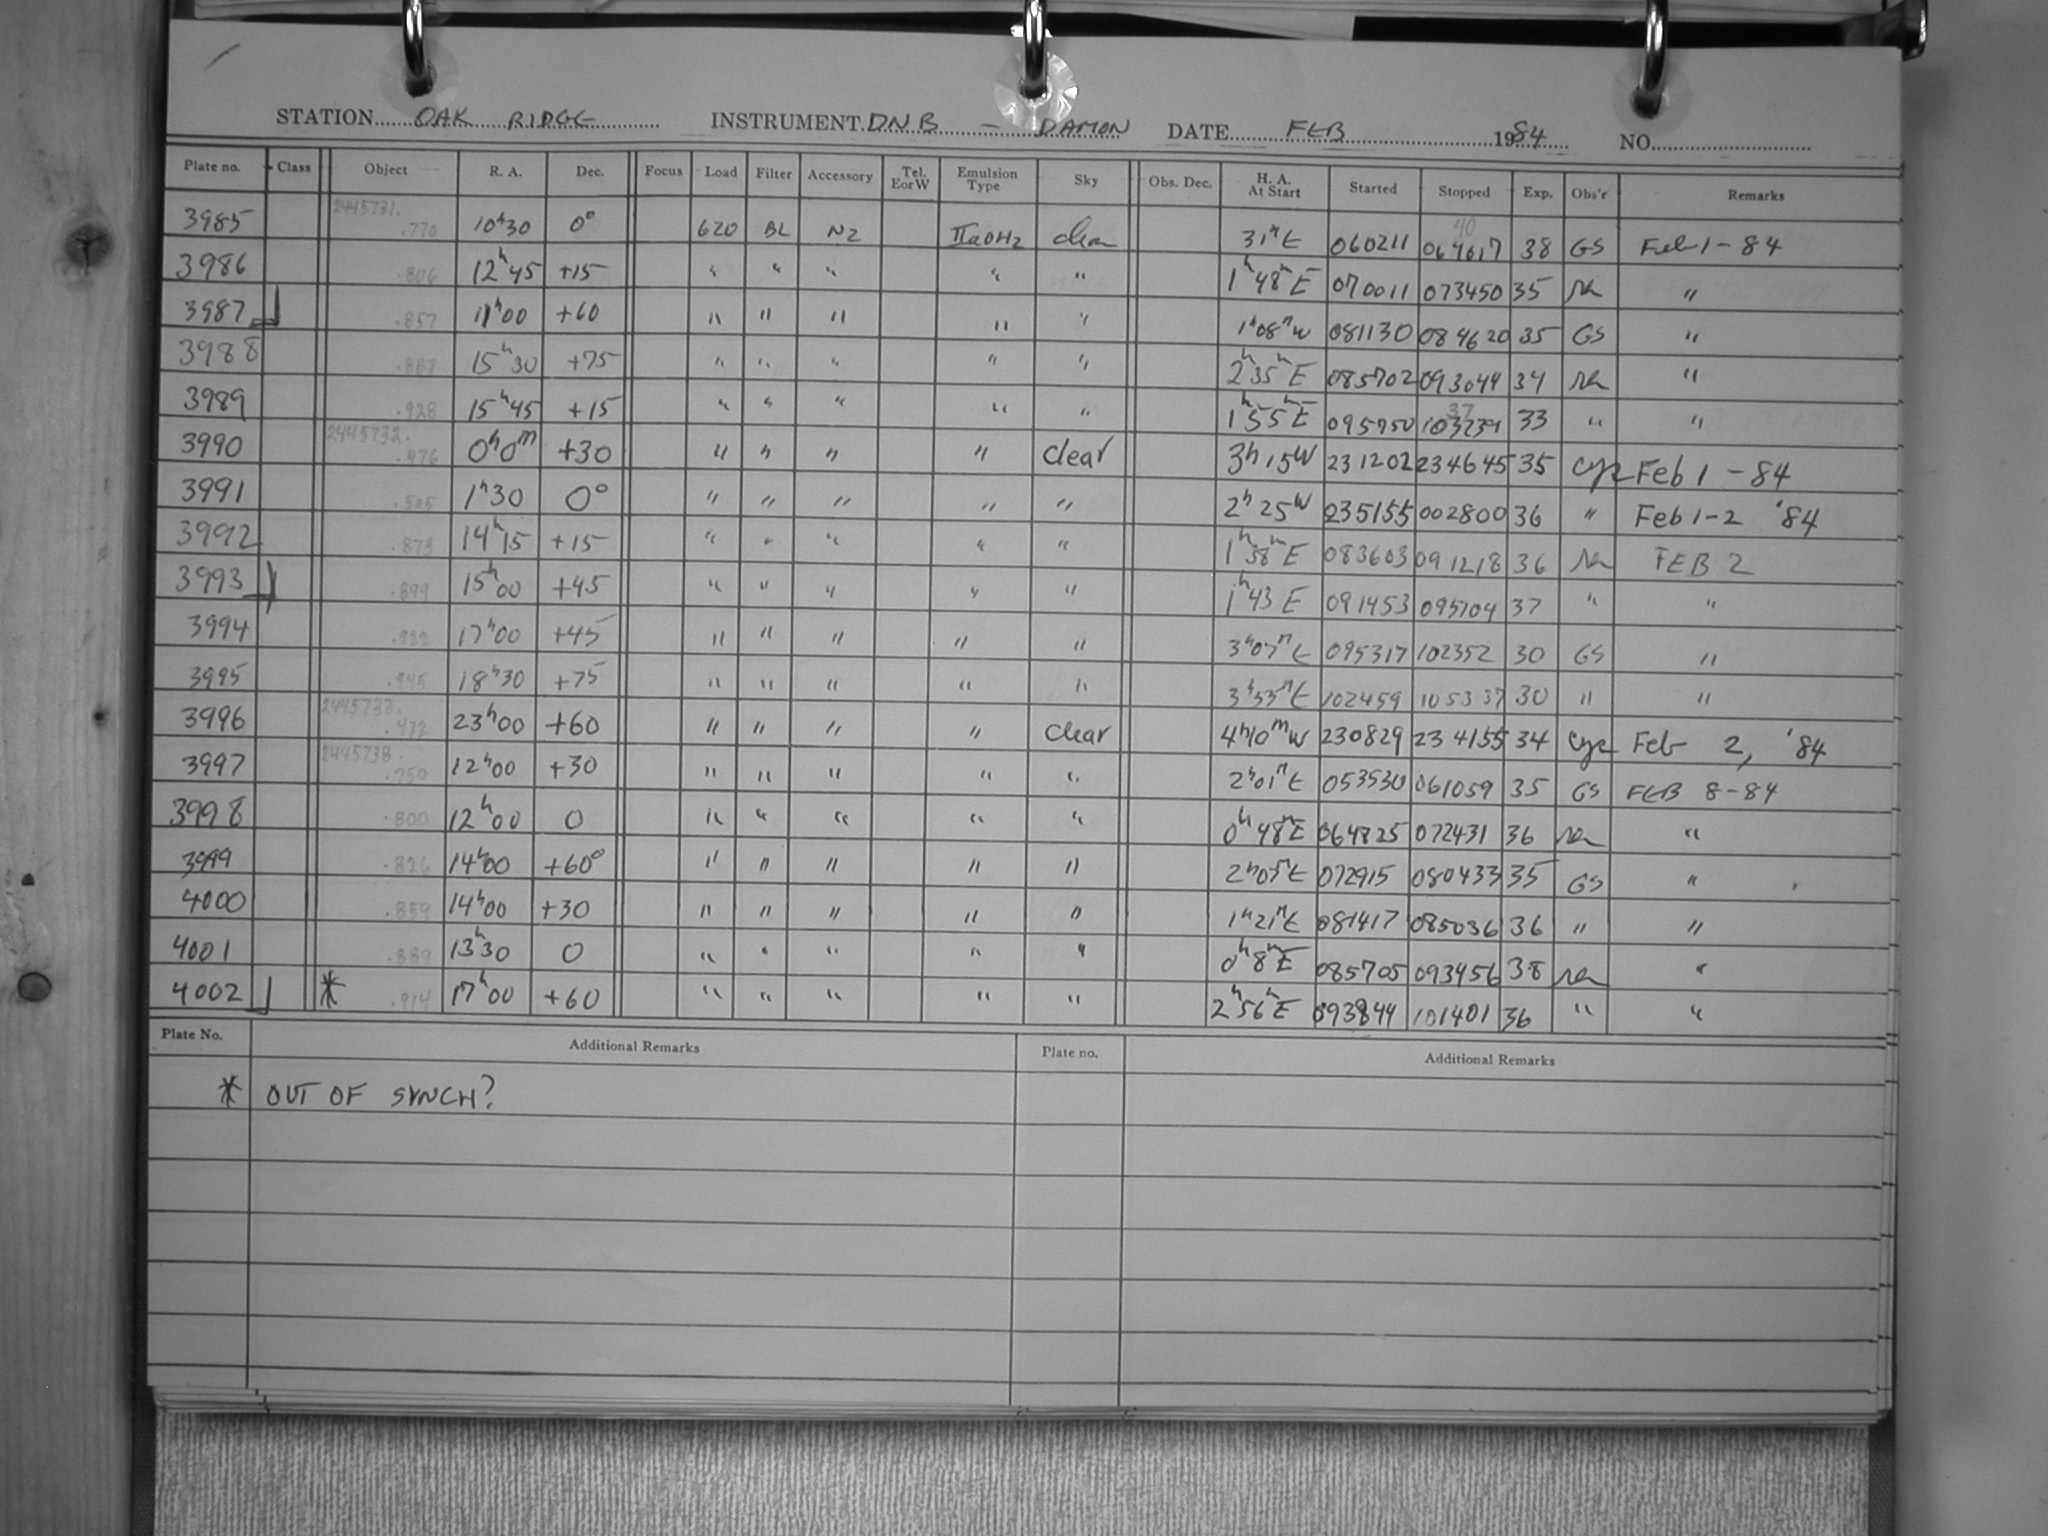 STATION OAK RIDGE INSTRUMENT DNB - DAMON DATE FEB 1984 NO.
Plate no. Class Object R. A. Dec. Focus Load Filter Accessory Tel. E or W Emulsion Type Sky Obs. Dec. H. A. At Start Started Stopped Exp. Obs'r Remarks
3985 2445731. .770 10h30 0° 620 BL N2 IIaOH2 clear 31m E 060211 064017 40 38 GS Feb 1-84
3986 .806 12h45 +15 " " " " " 1h48m E 070011 073450 35 "
3987 .857 11h00 +60 " " " " " 1h08m W 081130 084620 35 GS "
3988 .887 15h30 +75 " " " " " 2h35m E 085702 093044 34 "
3989 .928 15h45 +15 " " " " " 1h55m E 095950 103239 37 33 " "
3990 2445732. .476 0h0m +30 " " " " clear 3h15W 231202 234645 35 Feb 1-84
3991 .505 1h30 0° " " " " " 2h25W 235155 002800 36 " Feb 1-2 '84
3992 .873 14h15 +15 " " " " " 1h38m E 083603 091218 36 FEB 2
3993 .899 15h00 +45 " " " " " 1h43 E 091453 095104 37 " "
3994 .922 17h00 +45 " " " " " 3h07m E 095317 102352 30 GS "
3995 .945 18h30 +75 " " " " " 3h53m E 102459 105337 30 " "
3996 2445733. .472 23h00 +60 " " " " clear 4h10m W 230829 234155 34 Feb 2, '84
3997 2445738. .750 12h00 +30 " " " " " 2h01m E 053530 061059 35 GS FEB 8-84
3998 .800 12h00 0 " " " " " 0h48m E 064825 072431 36 "
3999 .826 14h00 +60° " " " " " 2h05m E 072915 080433 35 GS "
4000 .859 14h00 +30 " " " " " 1h21m E 081417 085036 36 " "
4001 .889 13h30 0 " " " " " 0h8m E 085705 093456 38 "
4002 * .914 17h00 +60 " " " " " 2h56m E 093844 101401 36 " "
Plate No. Additional Remarks Plate no. Additional Remarks
* OUT OF SYNCH?